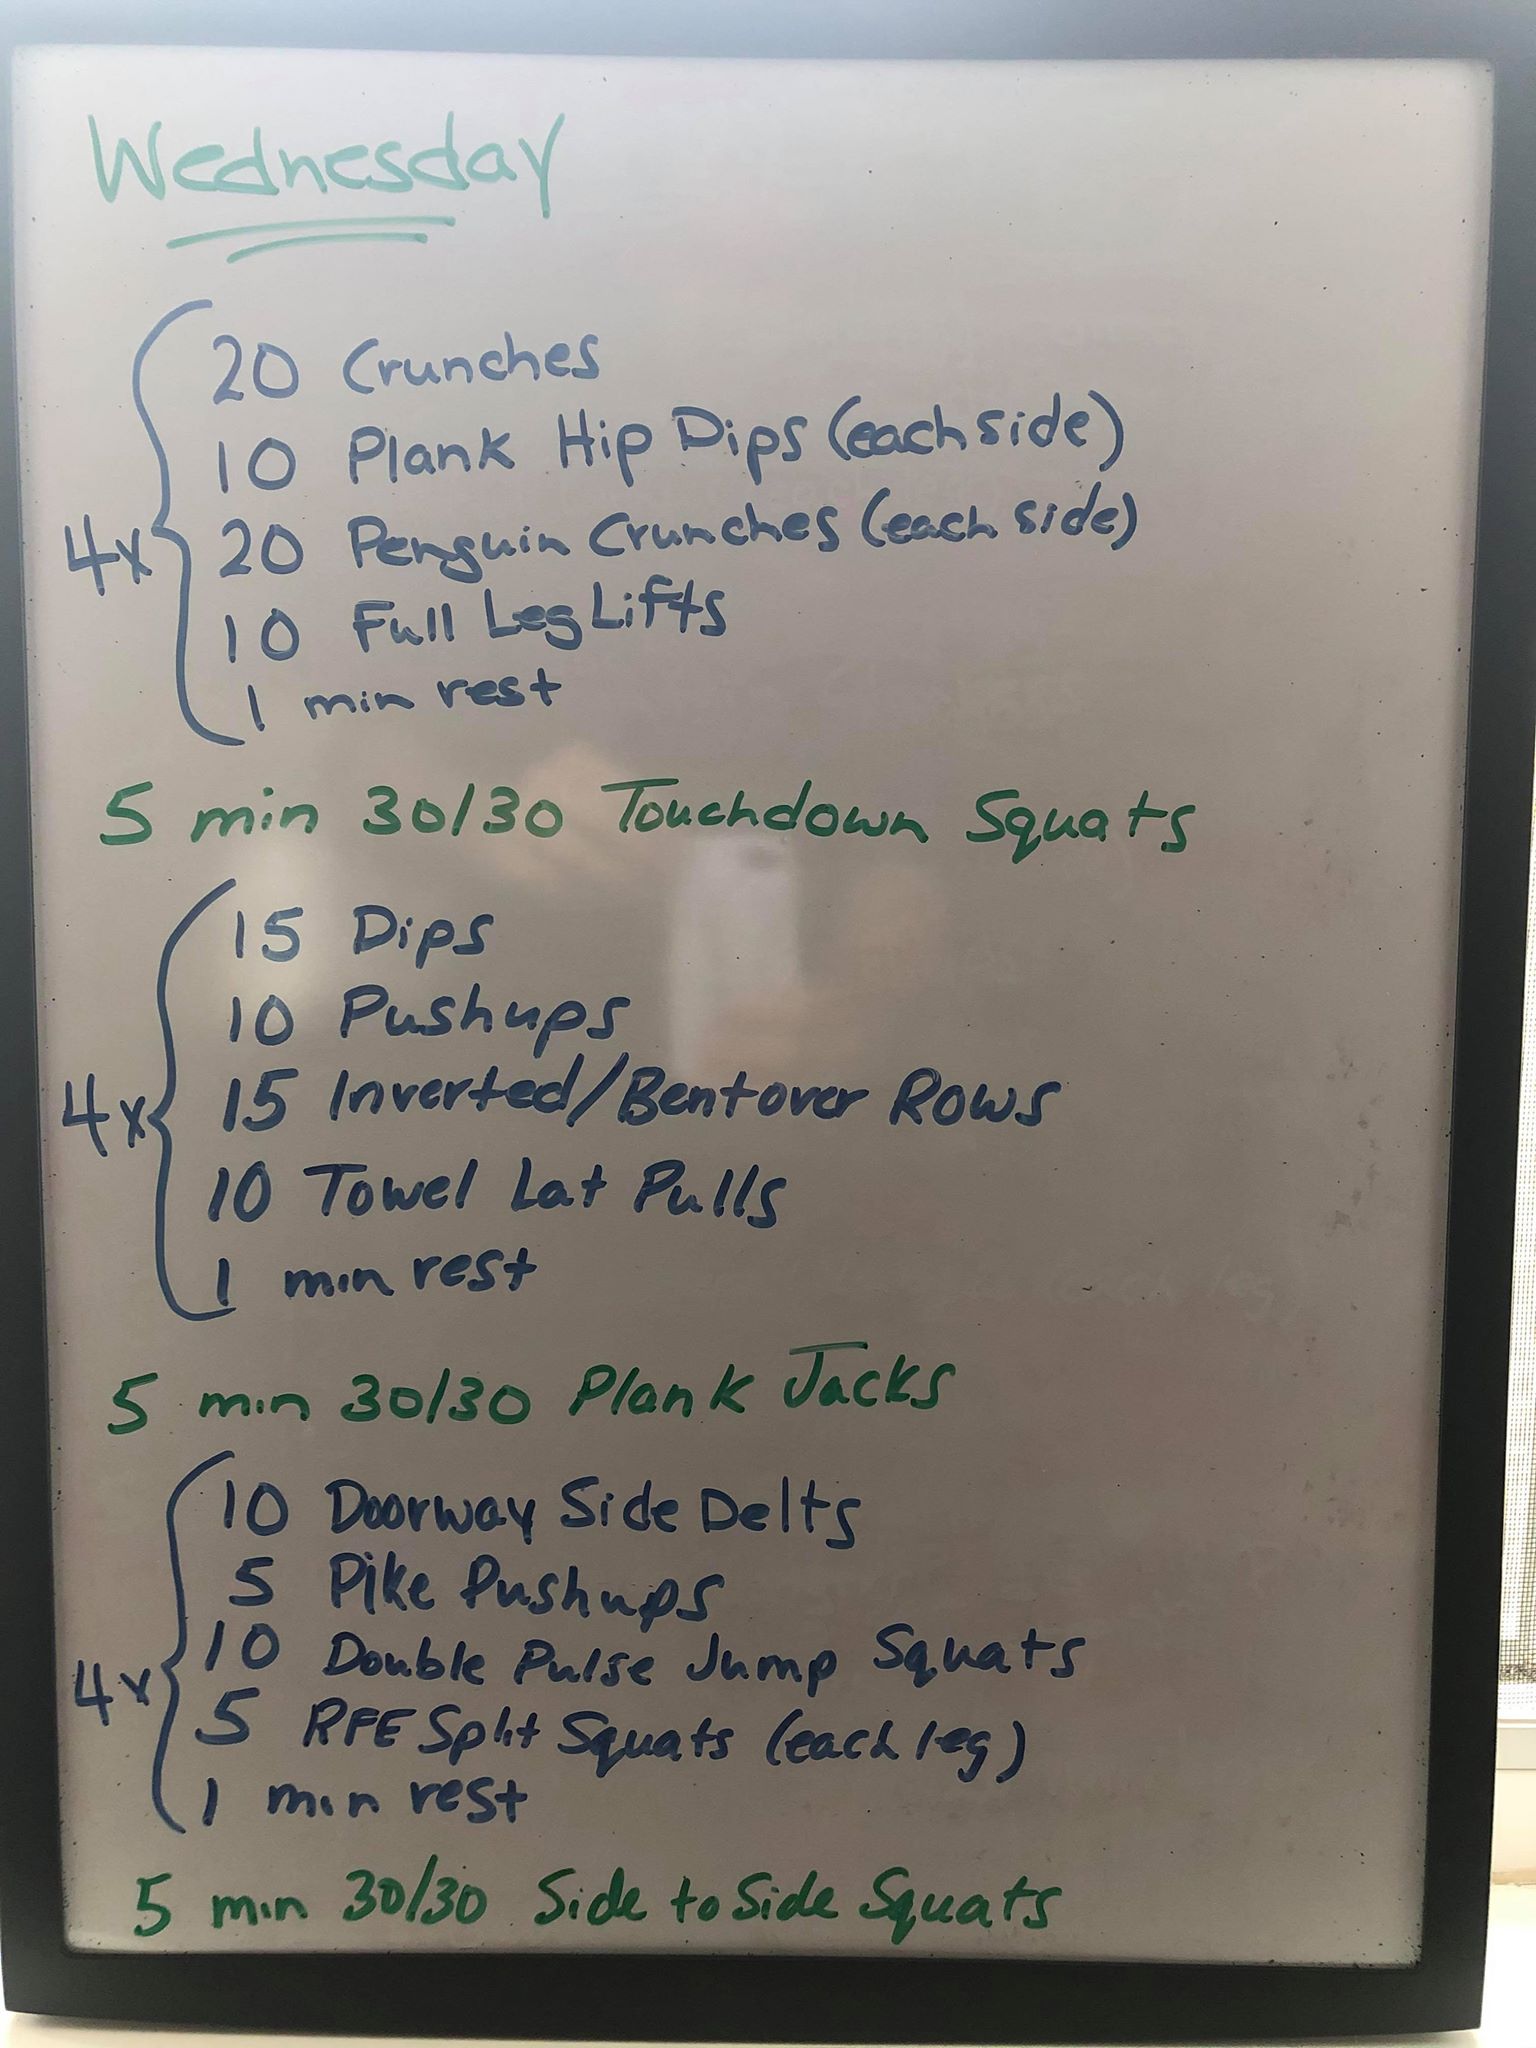 Wednesday
20 Crunches
10 Plank Hip Dips (each side)
4x
20 Penguin Crunches (each side)
10 Full Leg Lifts
1 min rest
5 min 30/30 Touchdown Squats
15 Dips
10 Pushups
4x
15 Inverted/Bentover Rows
10 Towel Lat Pulls
1 min rest
5 min 30/30 Plank Jacks
10 Doorway Side Delts
5 Pike Pushups
10 Double Pulse Jump Squats
4x
5 RFE Split Squats (each leg)
1 min rest
5 min 30/30 Side to Side Squats